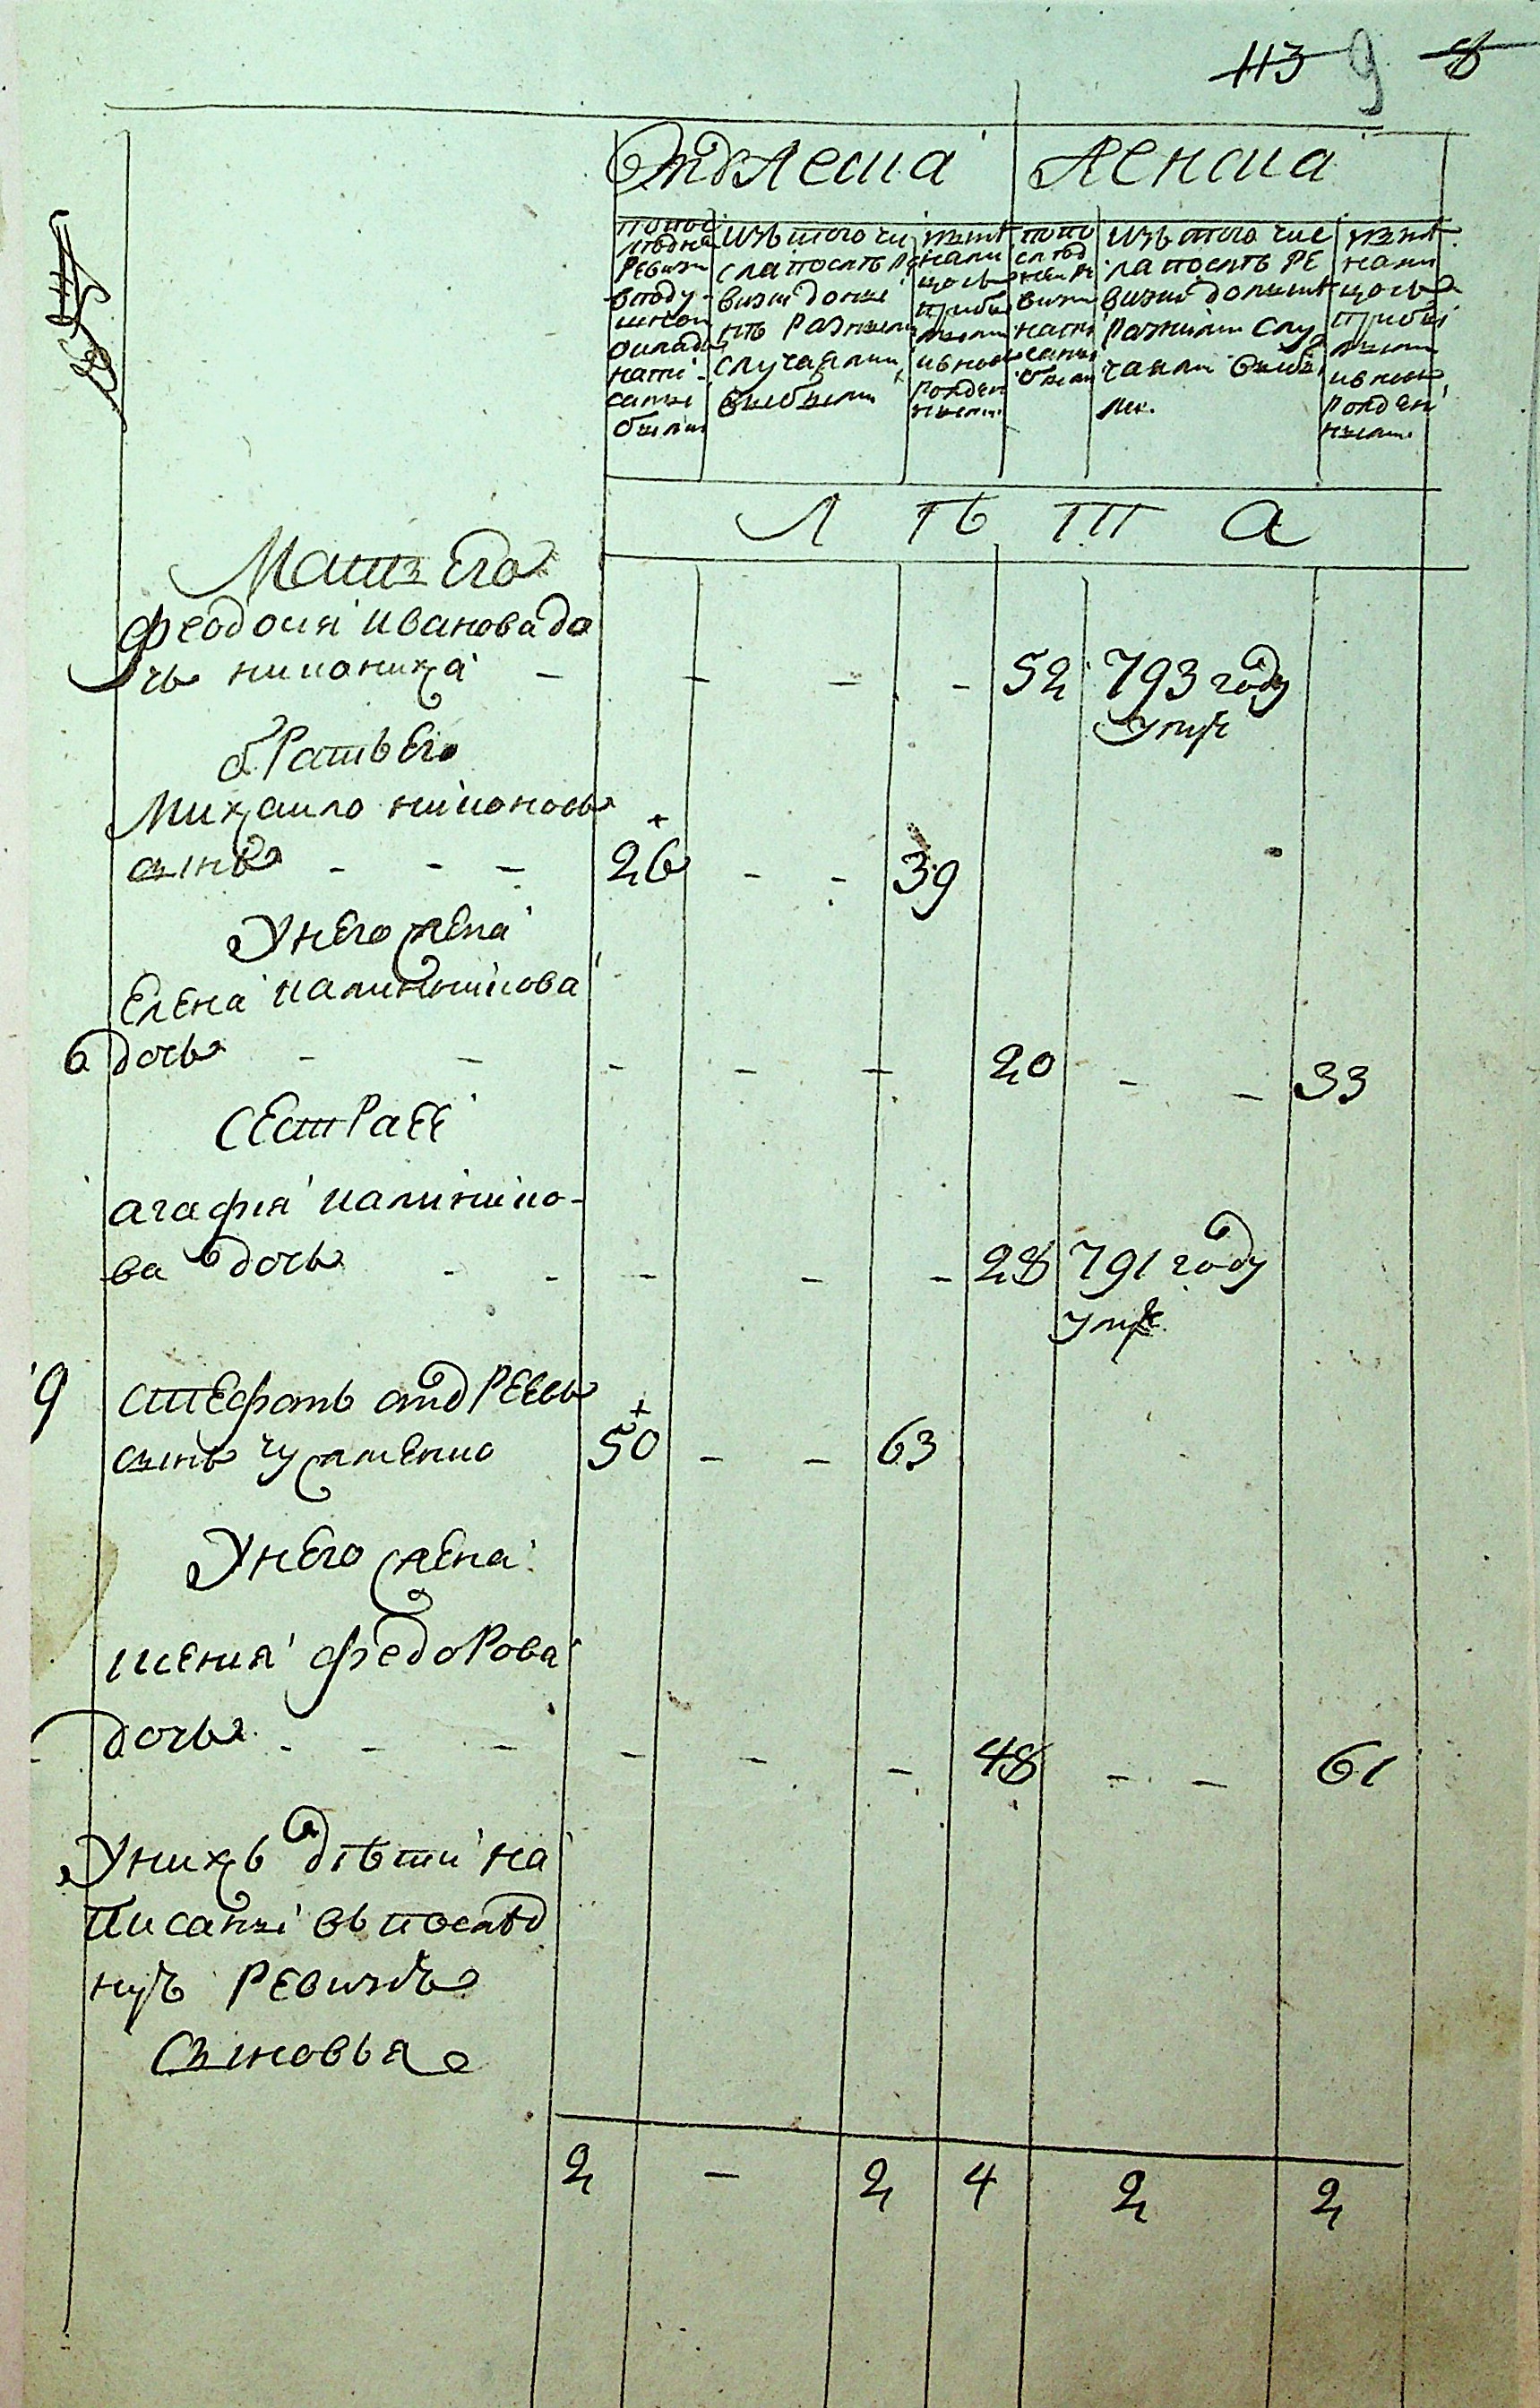 113 9 8
Мужеска Женска
попос лѣдне Ревизи вподу шном окладѣ напи саны были
Изъ того чи сла послѣ Ре визии доны нѣ разными случаями выбыли
нынѣ нали цо съ прибы лыми ивново рожден ными
попо слѣд ней ре визи напи саны были
Изъ того чис ла послѣ РЕ визии донынѣ разными слу чаями выбы ли.
нынѣ нали цо съ прибы лыми ивново рожден ными
Л Ѣ Т А
Мать Его
феодосия Иванова до
чь никониха - - - - 52 793 году
умре
братъ Его
Михаило никоновъ
сынъ - - - 26 - - 39
Унего жена
Елена калиникова
дочь - - - - - 20 - - 33
СЕстра ЕЕ
агафия калинико-
ва дочь - - - - - 28 791 году
умре
9 стЕфанъ андРЕевъ
сынъ чужменко 50 - - 63
Унего жена
ксения федорова
дочь - - - - - - 48 - - 61
Унихъ дѣти на
писаны въ послѣд
нуѣ РЕвизиѣ
Сыновья
2 - 2 4 2 2